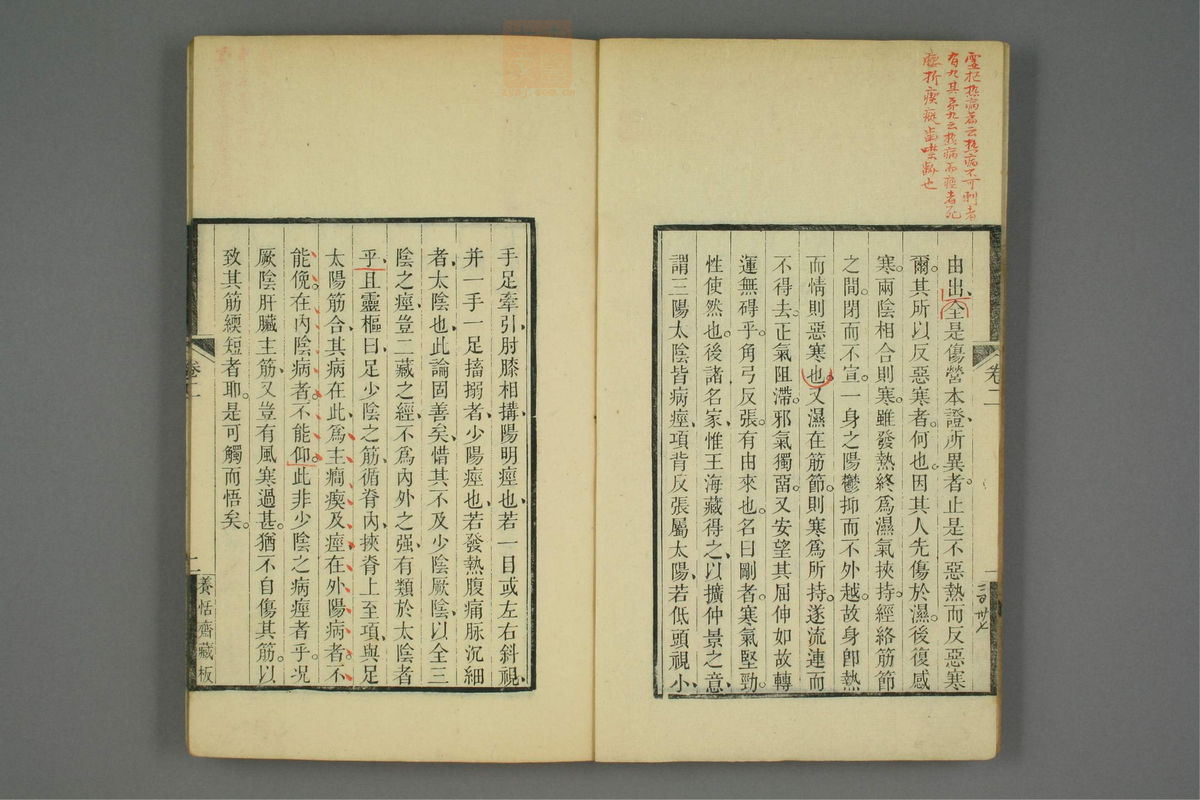 靈樞熱病篇云熱病不可刺者
有九其第九云熱病而痙者死
腰折瘈瘲齒噤齘也
由出全是傷營本證所異者止是不惡熱而反惡寒
爾其所以反惡寒者何也因其人先傷於濕後復感
寒兩陰相合則寒雖發熱終爲濕氣挾持經絡筋節
之間閉而不宣一身之陽鬱抑而不外越故身卽熱
而情則惡寒也又濕在筋節則寒爲所持遂流連而
不得去正氣阻滯邪氣獨留又安望其屈伸如故轉
運無碍乎角弓反張有由來也名曰剛者寒氣堅勁
性使然也後諸名家惟王海藏得之以擴仲景之意
謂三陽太陰皆病痙項背反張屬太陽若低頭視小
卷二
一
手足牽引肘膝相搆陽明痙也若一目或左右斜視
并一手一足搐搦者少陽痙也若發熱腹痛脉沉細
者太陰也此論固善矣惜其不及少陰厥陰以全三
陰之痙豈二藏之經不爲內外之强有類於太陰者
乎且靈樞曰足少陰之筋循脊內挾脊上至項與足
太陽筋合其病在此爲主癇瘈及痙在外陽病者不
能俛在內陰病者不能仰此非少陰之病痙者乎况
厥陰肝臟主筋又豈有風寒過甚猶不自傷其筋以
致其筋緛短者耶是可觸而悟矣
卷二
養恬齋藏板